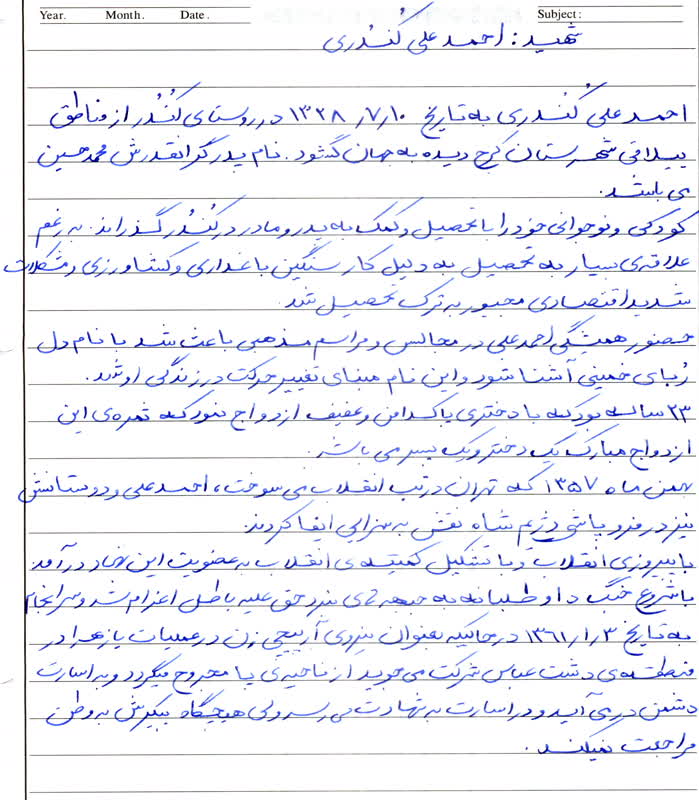 Year. Month. Date. Subject:
شهید: احمد علی کُندُری
احمد علی کُندُری به تاریخ ۱۳۲۸/۷/۱۰ در روستای کُندُر از مناطق
ییلاقی شهرستان کرج دیده به جهان گشود. نام پدر گرانقدرش محمد حسین
می باشد.
کودکی و نوجوانی خود را با تحصیل و کمک به پدر و مادر در کُندُر گذراند. به رغم
علاقه‌ی بسیار به تحصیل به دلیل کار سنگین باغداری و کشاورزی و مشکلات
شدید اقتصادی مجبور به ترک تحصیل شد.
حضور همیشگی احمد علی در مجالس و مراسم مذهبی باعث شد با نام دل
رُبای خمینی آشنا شود و این نام مبنای تغییر حرکت در زندگی او شد.
۲۳ ساله بود که با دختری پاکدامن و عفیف ازدواج نمود که ثمره‌ی این
ازدواج مبارک یک دختر و یک پسر می باشد.
بهمن ماه ۱۳۵۷ که تهران در تب انقلاب می سوخت، احمد علی و دوستانش
نیز در فروپاشی رژیم شاه نقش به سزایی ایفا کردند.
با پیروزی انقلاب و با تشکیل کمیته‌ی انقلاب به عضویت این نهاد درآمد
با شروع جنگ داوطلبانه به جبهه های نبرد حق علیه باطل اعزام شد و سرانجام
به تاریخ ۱۳۶۱/۱/۳ در حالیکه بعنوان نیروی آرپیچی زن در عملیات یا زهرا در
منطقه‌ی دشت عباس شرکت می جوید از ناحیه‌ی پا مجروح میگردد و به اسارت
دشمن در می آید و در اسارت به شهادت می رسد ولی هیچگاه پیکرش به وطن
مراجعت نمیکند.